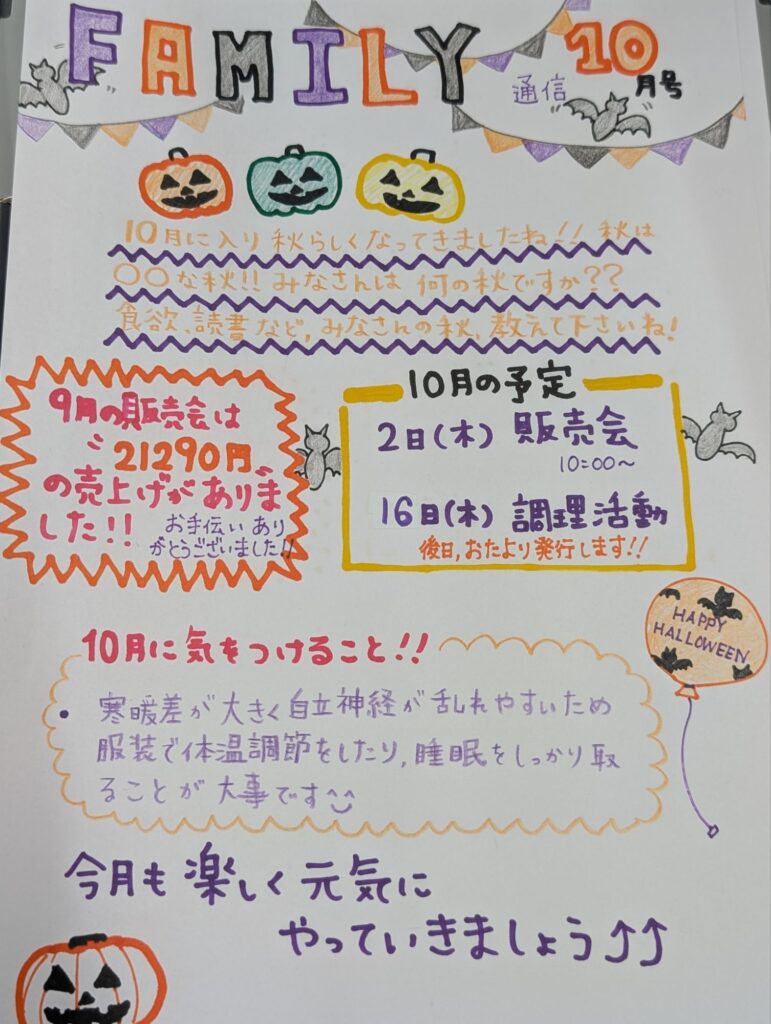 FAMILY 通信 10月号
10月に入り 秋らしくなってきましたね!! 秋は
〇〇な秋!! みなさんは 何の秋ですか??
食欲、読書など、みなさんの秋、教えて下さいね!
9月の販売会は
〝21290円〟
の売上げがありま
した!! お手伝い あり
がとうございました!!
10月の予定
2日(木) 販売会
10:00~
16日(木) 調理活動
後日,おたより発行します!!
HAPPY
HALLOWEEN
10月に気をつけること!!
・ 寒暖差が大きく自立神経が乱れやすいため
服装で体温調節をしたり,睡眠をしっかり取
ることが 大事です
今月も 楽しく 元気に
やっていきましょう⤴⤴